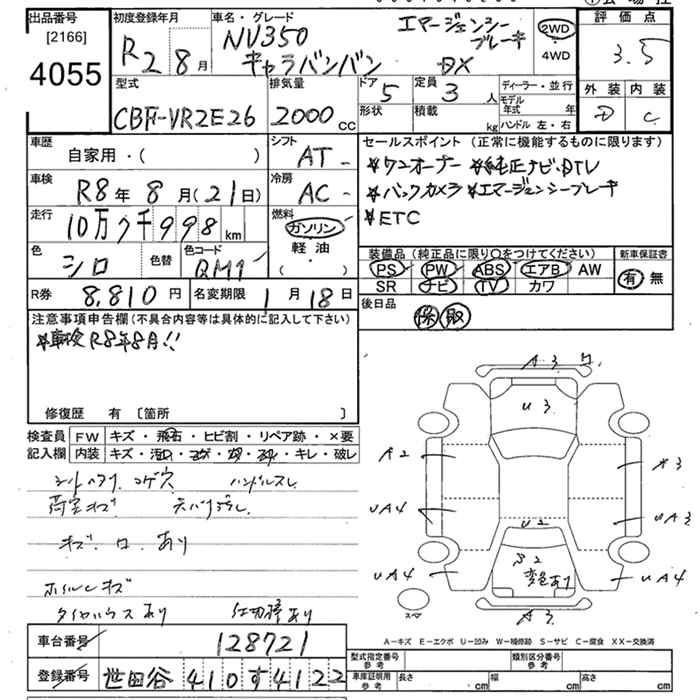 出品番号
[2166]
4055
初度登録年月
R2 8月
車名・グレード
NV350
キャラバンバン
エマージェンシー
ブレーキ
DX
2WD
4WD
評価点
3.5
外装 内装
D C
型式
CBF-VR2E26
排気量
2000 CC
ドア 5
形状
定員 3人
積載 kg
ディーラー・並行
モデル年式 年
ハンドル 左・右
車歴
自家用・( )
シフト
AT-
車検
R8年8月(21日)
冷房
AC-
走行
10万7千998km
燃料
ガソリン
軽油
( ・ )
色
シロ
色替
色コード
QM1
R券
8,810円
名変期限 1月18日
セールスポイント(正常に機能するものに限ります)
*ワンオーナー *純正ナビ・DTV
*バックカメラ *エマージェンシーブレーキ
*ETC
装備品(純正品に限り○をつけてください)
PS PW ABS エアB AW
SR ナビ TV カワ
新車保証書
有 無
後日品
保 取
注意事項申告欄(不具合内容等は具体的に記入して下さい)
*車検R8年8月!!
修復歴 有 [箇所 ]
検査員
記入欄
FW キズ・飛石・ヒビ割・リペア跡・×要
内装 キズ・汚れ・コゲ・穴・スレ・キレ・破レ
コゲ穴 ハンドルスレ
荷室キズ
キズ.ロ.あり
ホイルキズ
タイヤハウスあり 仕切棒あり
A3
U3
A2
A3
UA4
UA3
U2
S2
変色あり
UA4
UA4
A3
スペア
A-キズ E-エクボ U-凹み W-補修跡 S-サビ C-腐食 XX-交換済
車台番号
128721
登録番号
世田谷 410す4122
型式指定番号
参考
類別区分番号
参考
車庫証明用
参考
長さ cm
幅 cm
高さ cm